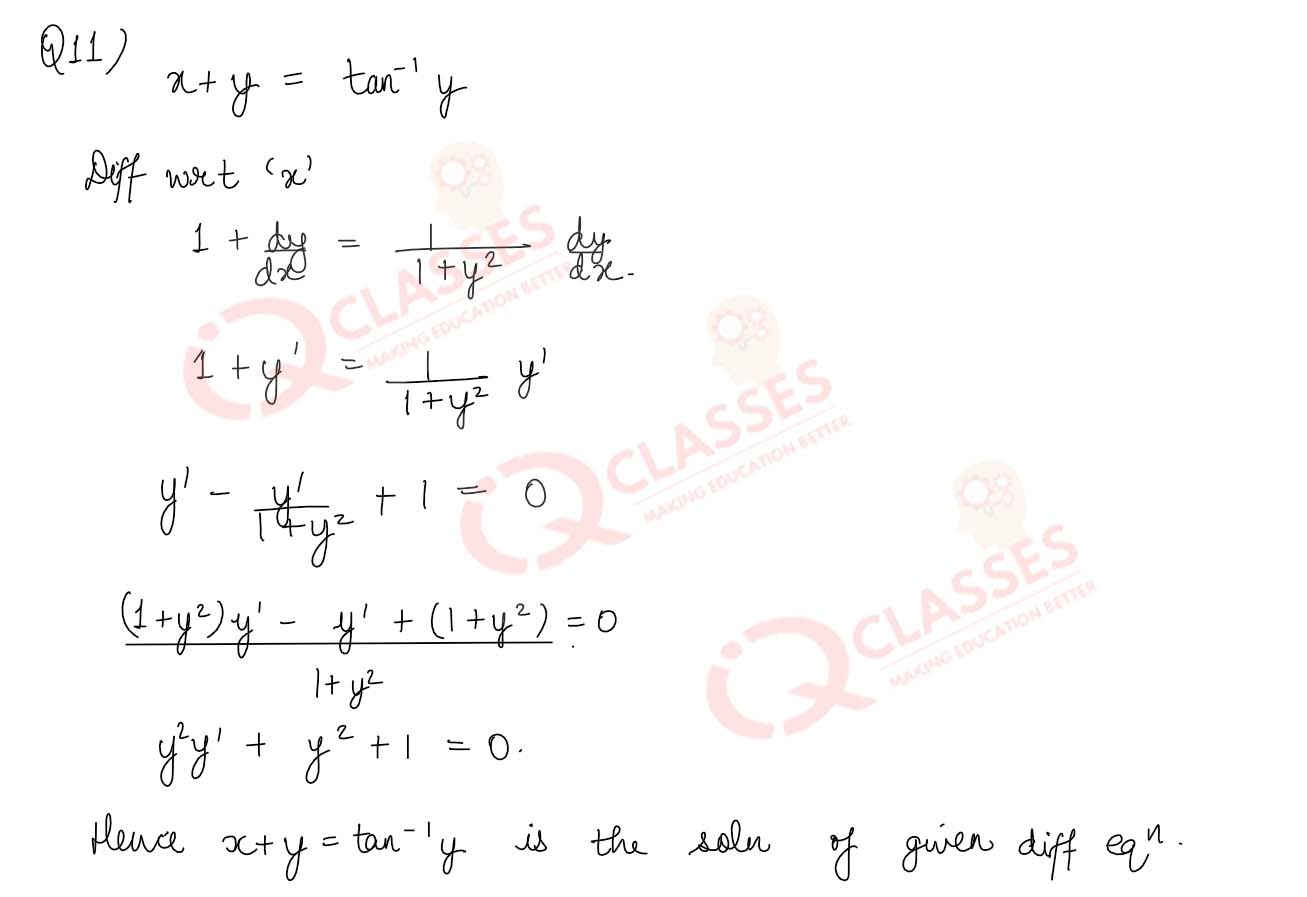 Q11)
x + y = tan⁻¹ y
Diff wrt 'x'
1 + dy/dx = 1/(1+y²) dy/dx.
1 + y' = 1/(1+y²) y'
y' - y'/(1+y²) + 1 = 0
((1+y²)y' - y' + (1+y²))/(1+y²) = 0.
y²y' + y² + 1 = 0.
Hence x+y = tan⁻¹y is the soln of given diff eqⁿ.
iQ CLASSES
MAKING EDUCATION BETTER
iQ CLASSES
MAKING EDUCATION BETTER
iQ CLASSES
MAKING EDUCATION BETTER